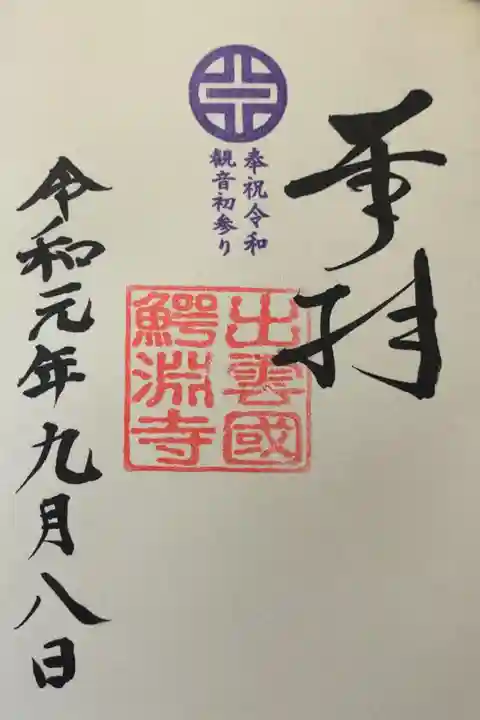 奉拝
奉祝令和
観音初参り
出雲國
鰐淵寺
令和元年九月八日